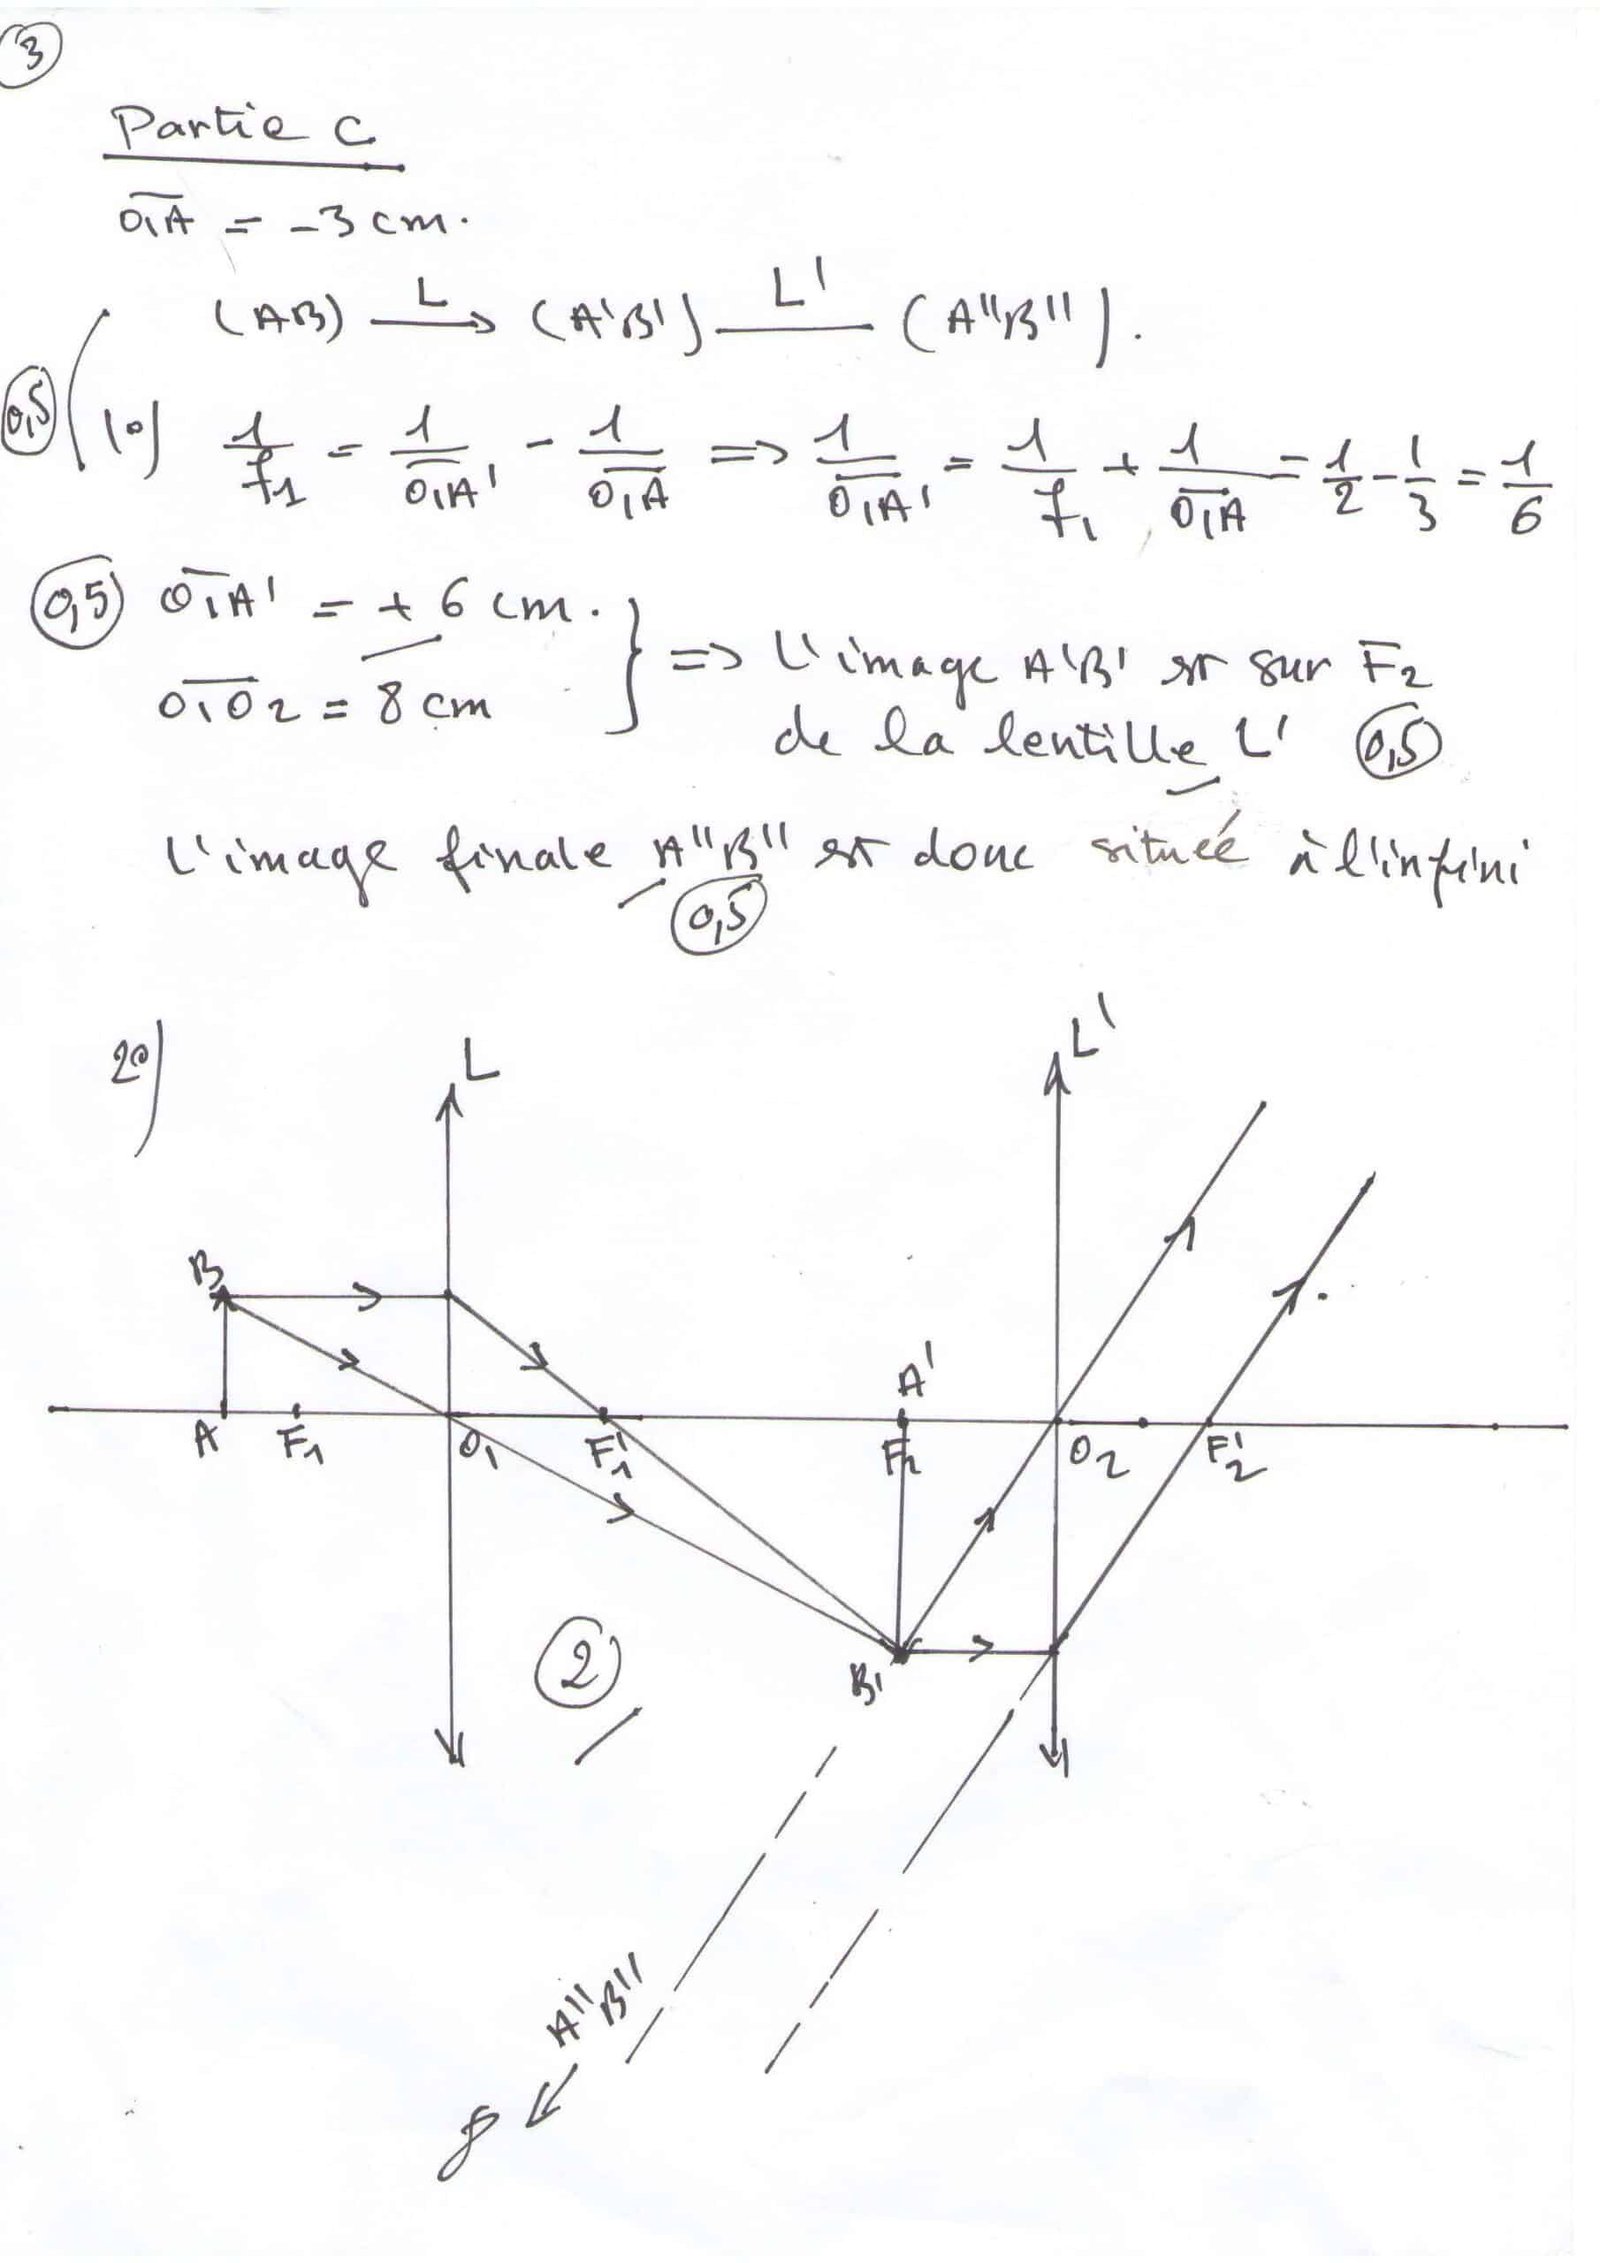 3
Partie C
O₁A = -3 cm.
(AB) —L→ (A'B') —L'— (A"B").
0,5 ( 1°) 1/f₁ = 1/O₁A' - 1/O₁A => 1/O₁A' = 1/f₁ + 1/O₁A = 1/2 - 1/3 = 1/6
0,5 O₁A' = + 6 cm.
O₁O₂ = 8 cm } => L'image A'B' est sur F₂
de la lentille L' 0,5
L'image finale A"B" est donc située à l'infini
0,5
2°)
L
L'
B
A'
A F₁ O₁ F'₁ F₂ O₂ F'₂
2
B'
A"B"
∞